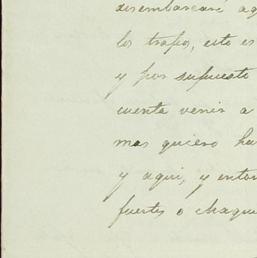 desembarcaré aq
los trapos, esto es
y por supuesto
cuenta venir a
mas quiero ha
y aqui, y enton
fuertes ó chaque